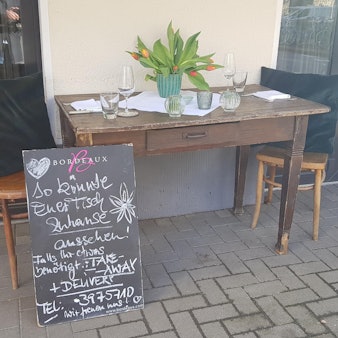 BORDEAUX
B
So könnte
Euer Tisch
Zuhause
aussehen!
Falls Ihr etwas
benötigt: TAKE-
AWAY
+ DELIVERY
TEL: 3975710
Wir freuen uns!